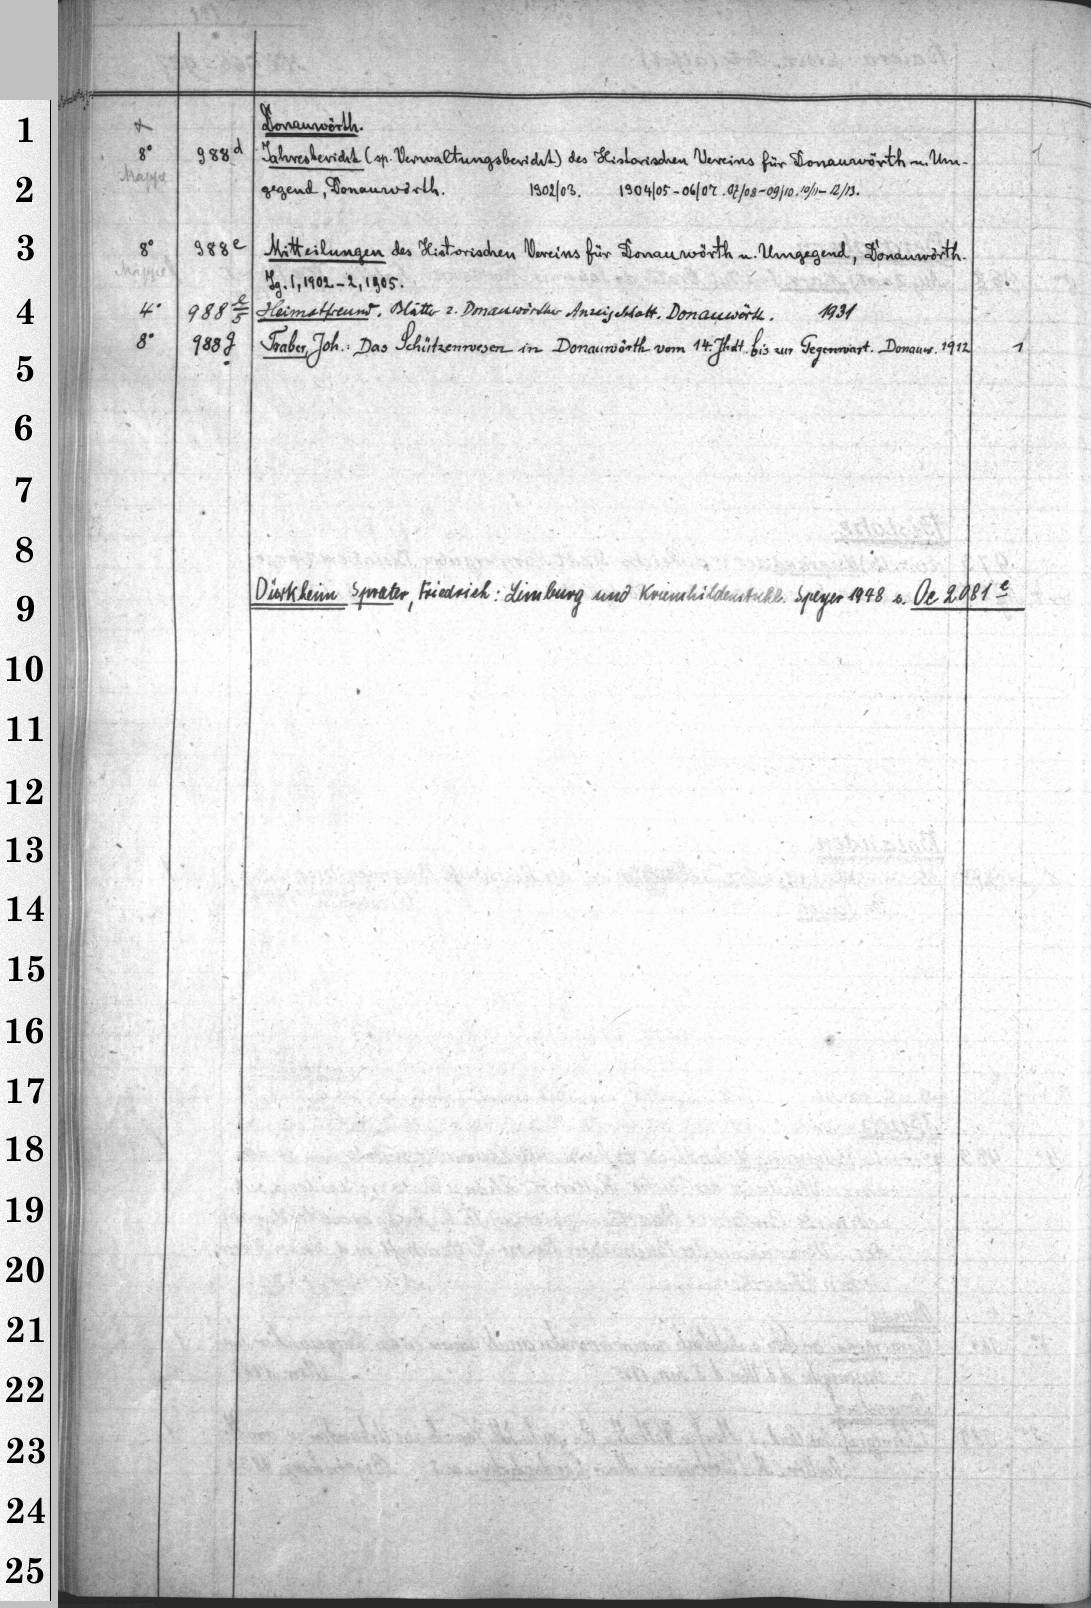 1
Donauwörth.
8° 988d Jahresbericht (sp. Verwaltungsbericht) des Historischen Vereins für Donauwörth u. Um- 1
Mappe
2
gegend, Donauwörth. 1902/03. 1904/05-06/07. 07/08-09/10. 10/11-12/13.
3
8° 988e Mitteilungen des Historischen Vereins für Donauwörth u. Umgegend, Donauwörth.
Mappe Jg. 1, 1902-2, 1905.
4
4° 988 e/5 Heimatfreund. Blätter z. Donauwörther Anzeigeblatt. Donauwörth. 1931
8° 988g Traber, Joh.: Das Schützenwesen in Donauwörth vom 14. Jhdt. bis zur Gegenwart. Donauw. 1912 1
5
6
7
8
9
Dürkheim Sprater, Friedrich: Limburg und Kriemhildenstuhl. Speyer 1948 s. Oc 2081e
10
11
12
13
14
15
16
17
18
19
20
21
22
23
24
25